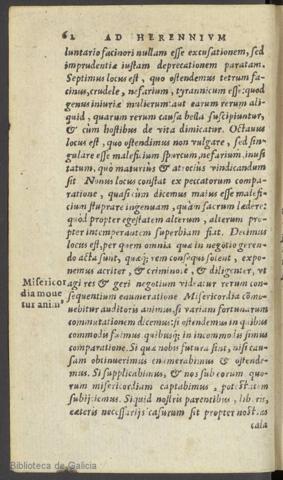 62 AD HERENNIVM
luntario facinori nullam esse excusationem, sed
imprudentiæ iustam deprecationem paratam.
Septimus locus est, quo ostendemus tetrum fa-
cinus, crudele, nefarium, tyrannicum esse: quod
genus iniuriæ mulierum: aut earum rerum ali-
quid, quarum rerum causa bella suscipiuntur,
& cum hostibus de vita dimicatur. Octauus
locus est, quo ostendimus non vulgare, sed sin-
gulare esse maleficium spurcum, nefarium, inusi
tatum, quo maturius & atrocius vindicandum
sit Nonus locus constat ex peccatorum compa-
ratione, quasi cùm dicemus maius esse malefi-
cium stuprare ingenuam, quàm sacrum lædere:
quòd propter egestatem alterum, alterum pro-
pter intemperantem superbiam fiat. Decimus
locus est, per quem omnia quæ in negotio geren-
do acta sunt, quæq; rem consequi solent, expo-
nemus acriter, & criminosè, & diligenter, vt
agi res & geri negotium videatur rerum con-
sequentium enumeratione Misericordia cōmo-
uebitur auditoris animus, si variam fortunarum
commutationem dicemus: si ostendemus in quibus
commodis fuimus quibusq; in incommodis simus
comparatione. Si quæ nobis futura sint, nisi cau-
sam obtinuerimus enumerabimus & ostende-
mus. Si supplicabimus, & nos sub eorum quo-
rum misericordiam captabimus, potestatem
subijciemus. Si quid nostris parentibus, liberis,
cæteris necessarijs casurum sit propter nostras
cala
Misericor
dia moue
tur anim'
Biblioteca de Galicia